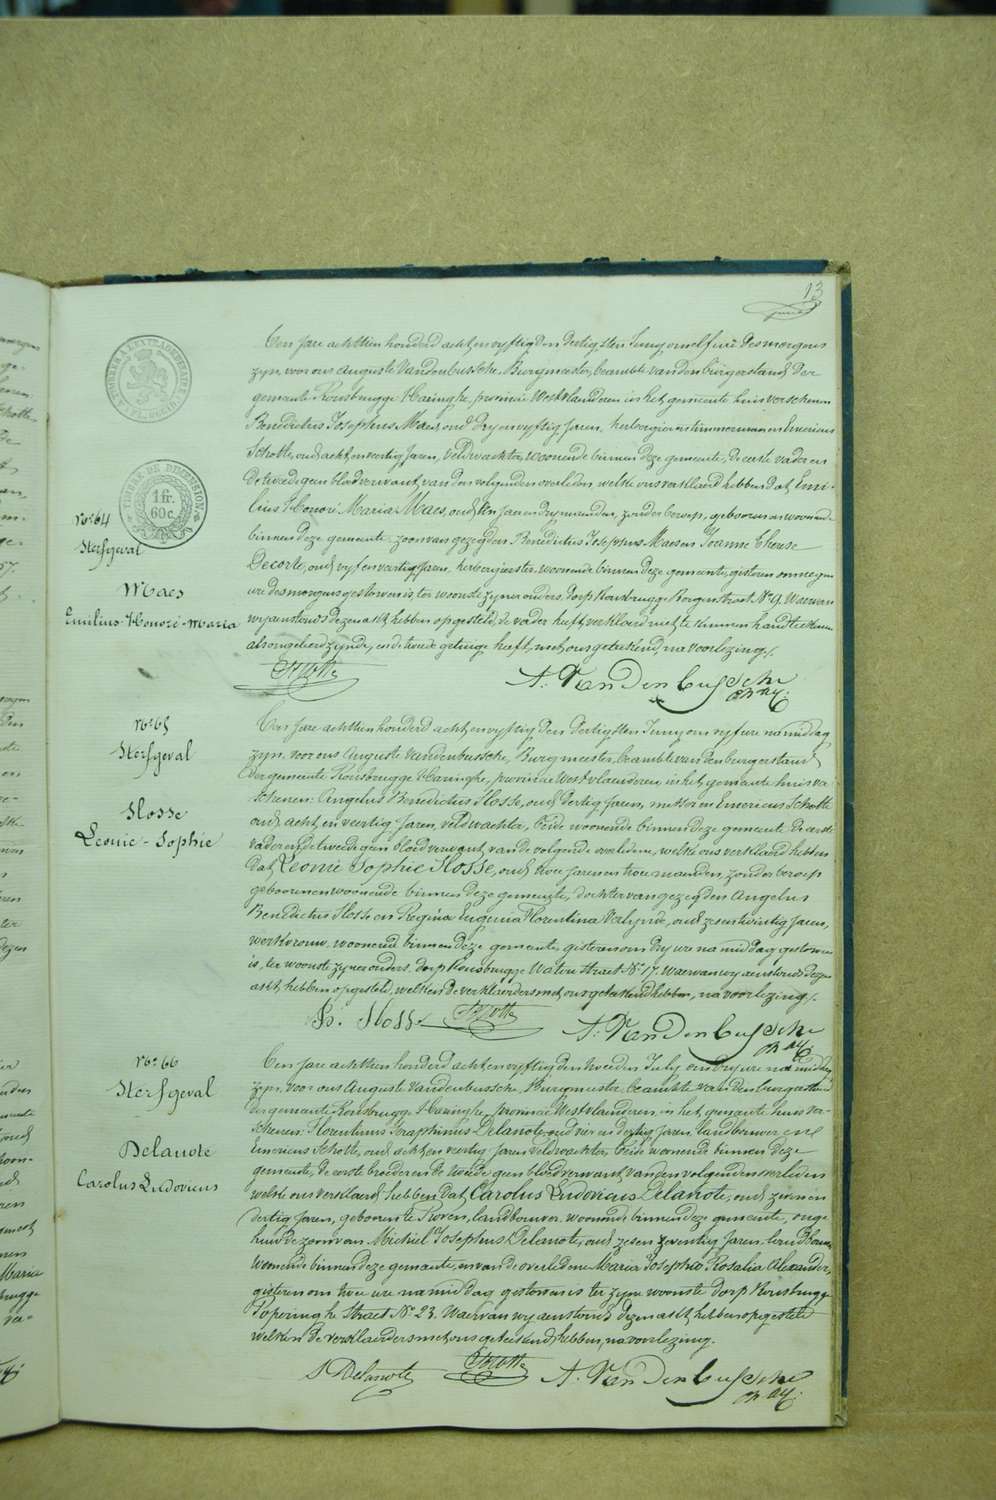 13
Een Jare achthien honderd achtenvyftig den dertigsten Juny om elf ure des morgens
zyn, voor ons Auguste Vandenbussche, Burgmeester, beambte van den burgerstand der
gemeente Rousbrugge Haringhe, provincie Westvlanderen in het gemeente huis verschenen
Benedictus Josephus Maes, oud dry en vyftig Jaren, herbergier en timmerman en Emericus
Schotte, oud acht en veertig Jaren, veldwachter, woonende binnen deze gemeente, de eerste vader en
de tweede geen bloedverwant van den volgenden overleden, welke ons verklaard hebben dat Emi-
lius Honoré Maria Maes, oud tien jaren en dry maanden, zonder beroep, geboren en woonende
binnen deze gemeente zoon van gezegden Benedictus Josephus Maes en Joanne Therese
Decorte, oud vyf en veertig Jaren, herbergierster, woonende binnen deze gemeente, gisteren om negen
ure des morgens gestorven is, ter woonste zyner ouders, dorp Rousbrugge Bergenstraet No 9. Waervan
wy aenstonds dezen akt hebben opgesteld, de vader heeft verklaerd niet te kunnen handteekenen
als ongeleerd zynde, en de tweede getuige heeft met ons geteekend, na voorlezing.
TIMBRE EXTRAORDINAIRE
TIMBRE DE DIMENSION
1 fr.
60 c.
No 64
Sterfgeval
Maes
Emilius-Honoré-Maria
ESchotte
A. VanDenBussche
No 65
Sterfgeval
Hosse
Leonie-Sophie
Een Jare achthien honderd acht en vyftig den dertigsten Juny om vyf ure namiddag
zyn, voor ons Auguste Vandenbussche, Burgmeester, beambte van den burgerstand
der gemeente Rousbrugge Haringhe, provincie Westvlaenderen, in het gemeente huis ver-
schenen: Angelus Benedictus Hosse, oud dertig Jaren, metser en Emericus Schotte
oud acht en veertig Jaren, veldwachter, beide woonende binnen deze gemeente de eerste
vader en de tweede geen bloedverwant van de volgende overledene, welke ons verklaerd hebben
dat Leonie Sophie Hosse, oud twee jaren en twee maanden, zonder beroep
geboren en woonende binnen deze gemeente, dochter van gezegden Angelus
Benedictus Hosse en Regina Eugenia Florentina, oud zes en twintig Jaren,
werkvrouw, woonend binnen deze gemeente, gisteren om dry ure na middag gestorven
is, ter woonste zyner ouders, dorp Rousbrugge Waton straet No 17. Waervan wy aenstonds dezen
akt hebben opgesteld, welken de verklaerders met ons geteekend hebben, na voorlezing.
B. Hosse
ESchotte
A. VanDenBussche
No 66
Sterfgeval
Delanote
Carolus Ludovicus
Een Jare achthien honderd acht en vyftig den tweeden July om dry ure na middag
zyn, voor ons Auguste Vandenbussche, Burgmeester, beambte van den burgerstand
der gemeente Rousbrugge Haringhe, provincie Westvlanderen, in het gemeente huis ver-
schenen: Florentinus Seraphinus Delanote, oud vier en dertig Jaren, landbouwer en
Emericus Schotte, oud acht en veertig Jaren veldwachter, beide woonende binnen deze
gemeente, de eerste broeder en de tweede geen bloedverwant van den volgenden overleden
welke ons verklaard hebben dat Carolus Ludovicus Delanote, oud
dertig Jaren, geboren te Proven, landbouwer, woonende binnen deze gemeente, onge
huwde zoon van Michiel Josephus Delanote, oud zes en zeventig Jaren, landbouwer
woonende binnen deze gemeente, en van de overledene Maria Josepha Rosalia Alexander,
gisteren om twee ure na middag gestorven is ter zyner woonste dorp Rousbrugge
Poperinghe Straet No 23. Waervan wy aenstonds dezen akt hebben opgesteld
welken de verklaerders met ons geteekend hebben, na voorlezing.
S Delanote
ESchotte
A. VanDenBussche